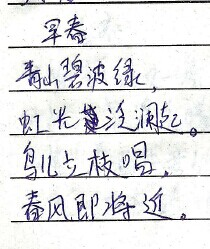 早春
青山碧波绿,
虹光涟澜起。
鸟儿立枝唱,
春风即将近。